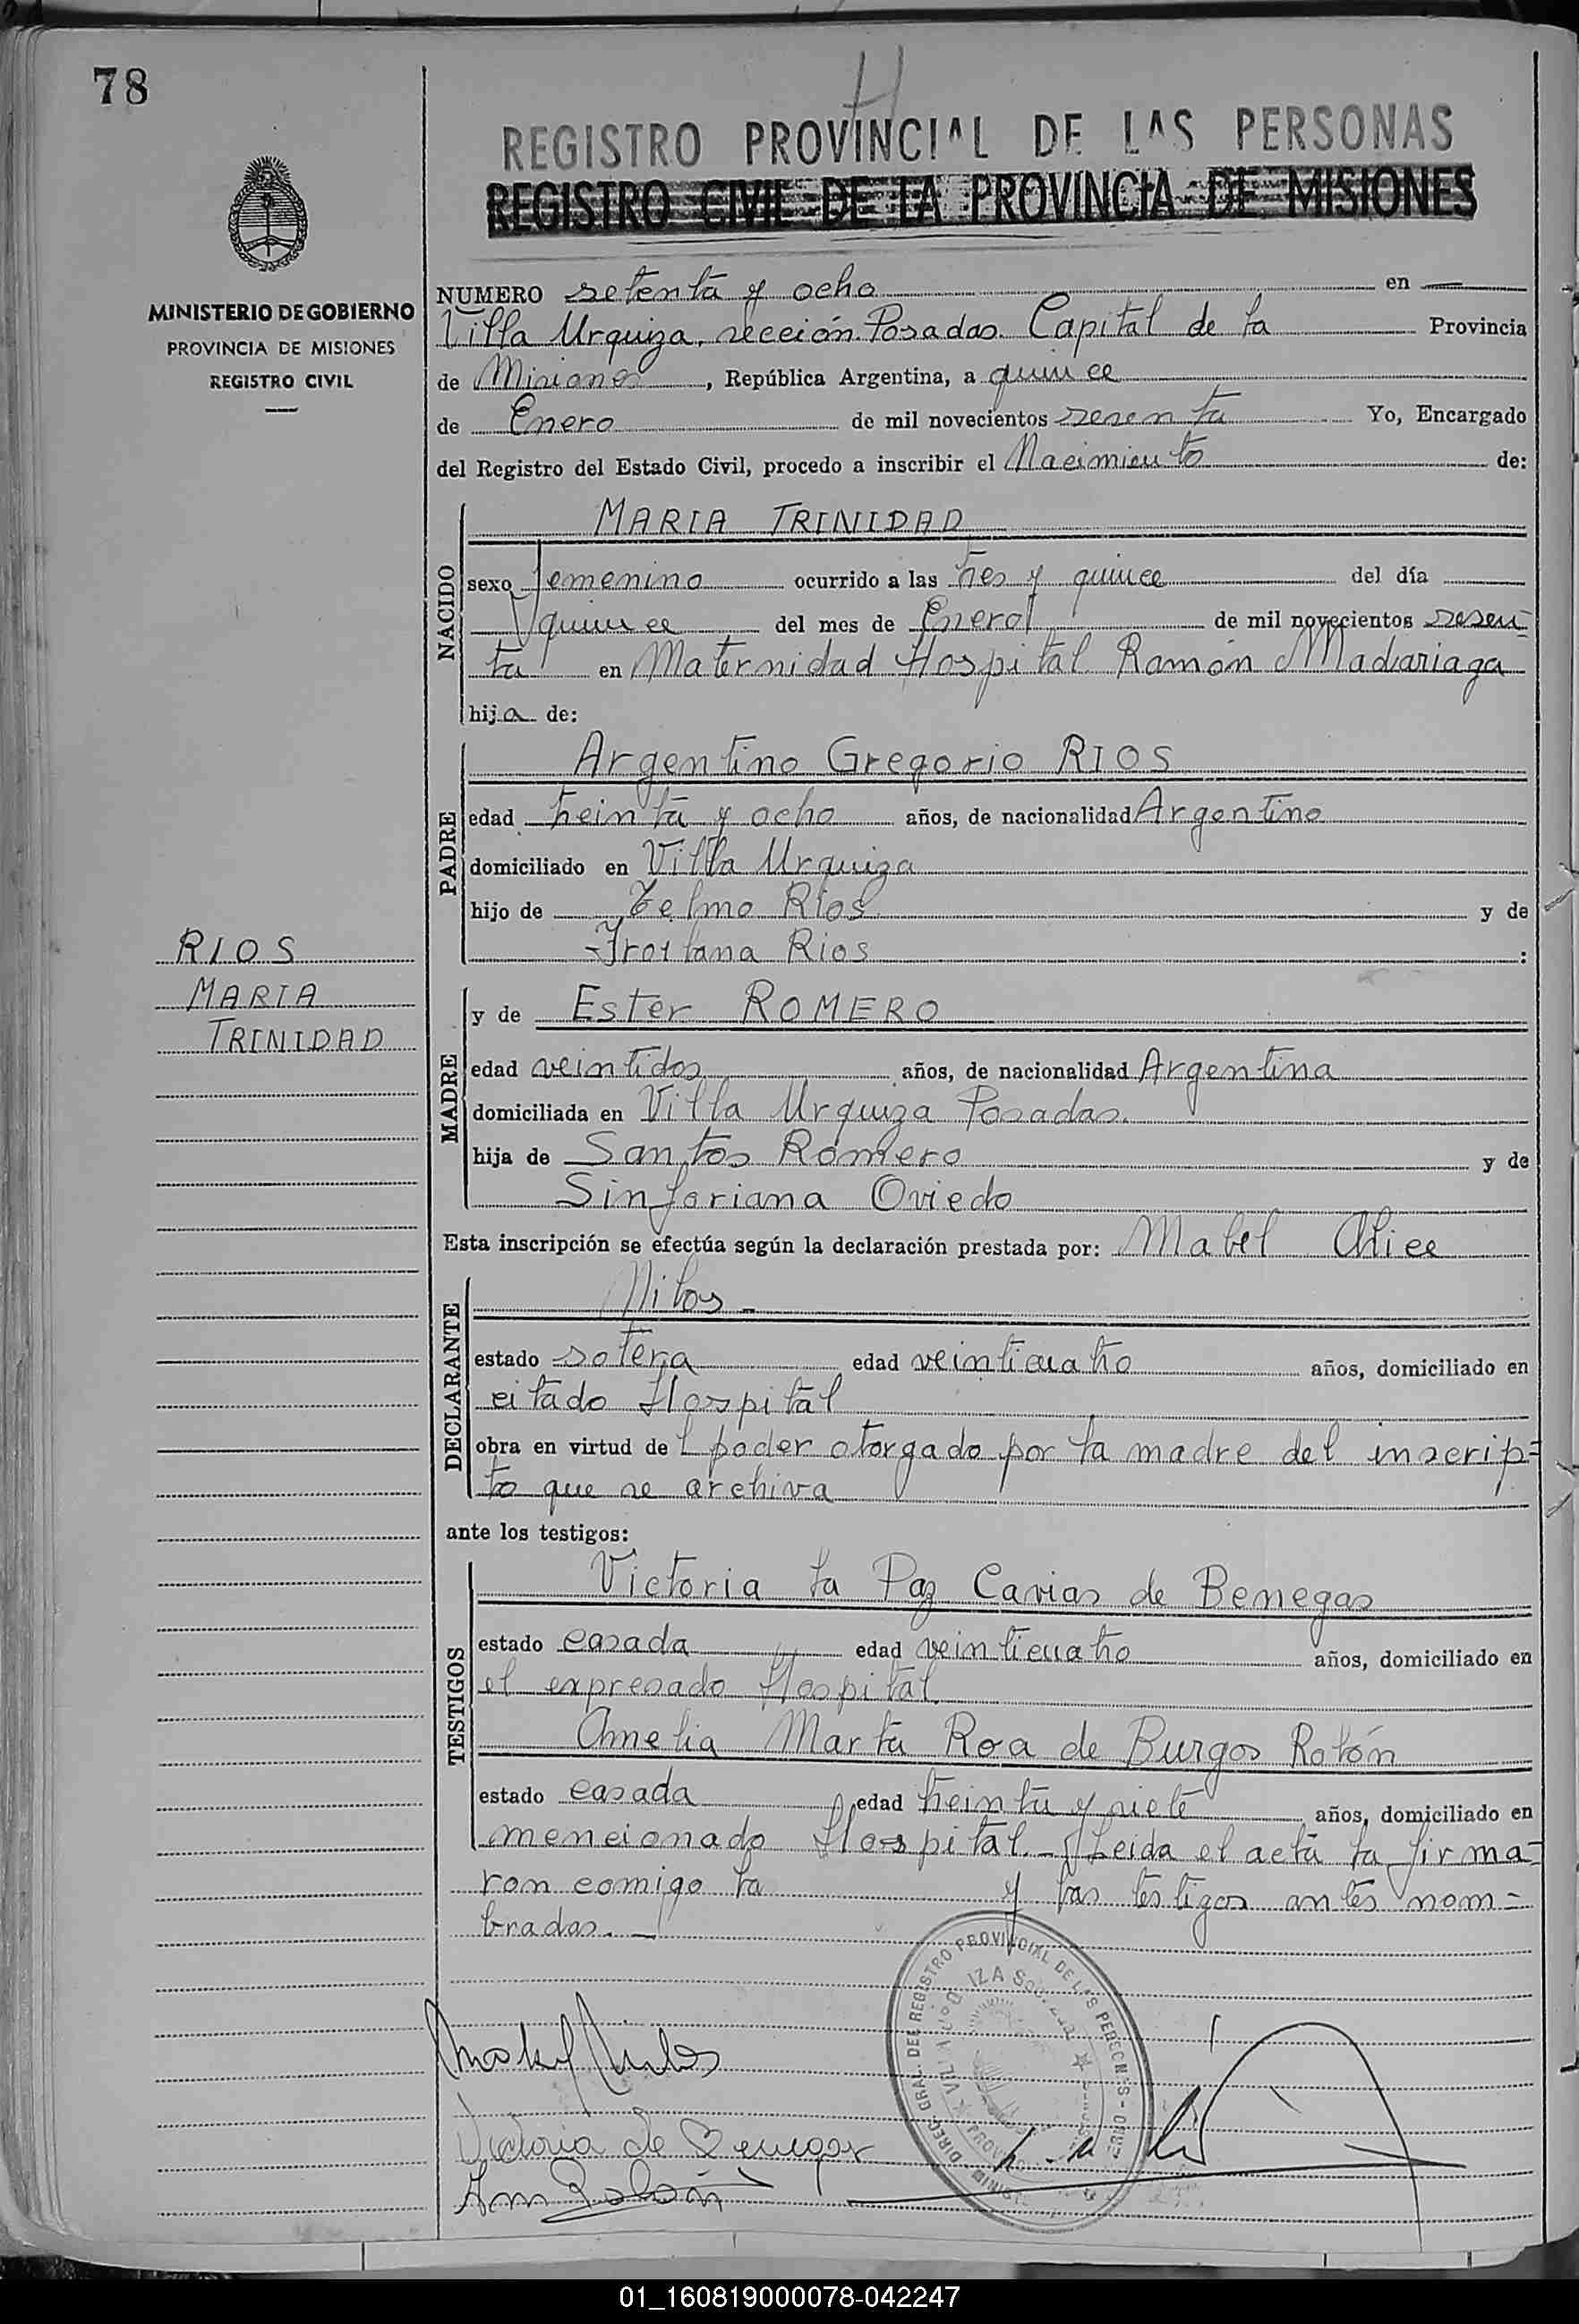 78
REGISTRO PROVINCIAL DE LAS PERSONAS
REGISTRO CIVIL DE LA PROVINCIA DE MISIONES
MINISTERIO DE GOBIERNO
PROVINCIA DE MISIONES
REGISTRO CIVIL
NUMERO setenta y ocho en
Villa Urquiza, sección Posadas. Capital de la Provincia
de Misiones, República Argentina, a quince
de Enero de mil novecientos sesenta Yo, Encargado
del Registro del Estado Civil, procedo a inscribir el Nacimiento de:
NACIDO
MARIA TRINIDAD
sexo femenino ocurrido a las tres y quince del día
quince del mes de Enero de mil novecientos sesen-
ta en Maternidad Hospital Ramón Madariaga
hija de:
PADRE
Argentino Gregorio RIOS
edad treinta y ocho años, de nacionalidad Argentino
domiciliado en Villa Urquiza
hijo de Telmo Rios y de
Rios :
RIOS
MARIA
TRINIDAD
MADRE
y de Ester ROMERO
edad veintidos años, de nacionalidad Argentina
domiciliada en Villa Urquiza Posadas.
hija de Santos Romero y de
Sinforiana Oviedo
Esta inscripción se efectúa según la declaración prestada por: Mabel Alice
DECLARANTE
Milos -
estado soltera edad veinticuatro años, domiciliado en
citado Hospital
obra en virtud del poder otorgado por la madre del inscrip=
to que se archiva
ante los testigos:
TESTIGOS
Victoria La Paz Carias de Benegas
estado casada edad veinticuatro años, domiciliado en
el expresado Hospital.
Amelia Marta Roa de Burgos Rotón
estado casada edad treinta y siete años, domiciliado en
mencionado Hospital.- Leida el acta la firma=
ron comigo la y las testigos antes nom=
bradas.-
Mabel Milos
Victoria de Benegas
DIREC. GRAL. DEL REGISTRO PROVINCIAL DE LAS PERSONAS
01_160819000078-042247